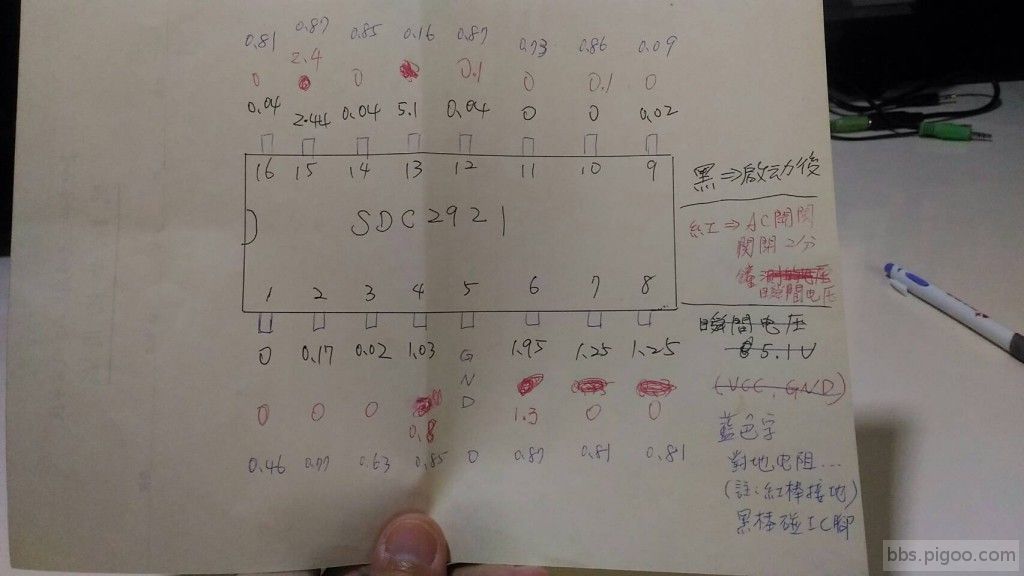 0.81 0.87 0.85 0.16 0.87 0.73 0.86 0.09
0 2.4 0 0.1 0 0.1 0
0.04 2.44 0.04 5.1 0.04 0 0 0.02
16 15 14 13 12 11 10 9
SDC2921
1 2 3 4 5 6 7 8
0 0.17 0.02 1.03 GND 1.95 1.25 1.25
0 0 0 0.8 1.3 0 0
0.46 0.77 0.63 0.85 0 0.87 0.81 0.81
黑⇒啟动後
紅⇒AC開関
関閉2分
鐘
瞬間电压
瞬間电压
5.1V
(VCC, GND)
藍色字
對地电阻...
(註:紅棒接地)
黑棒碰IC腳
bbs.pigoo.com